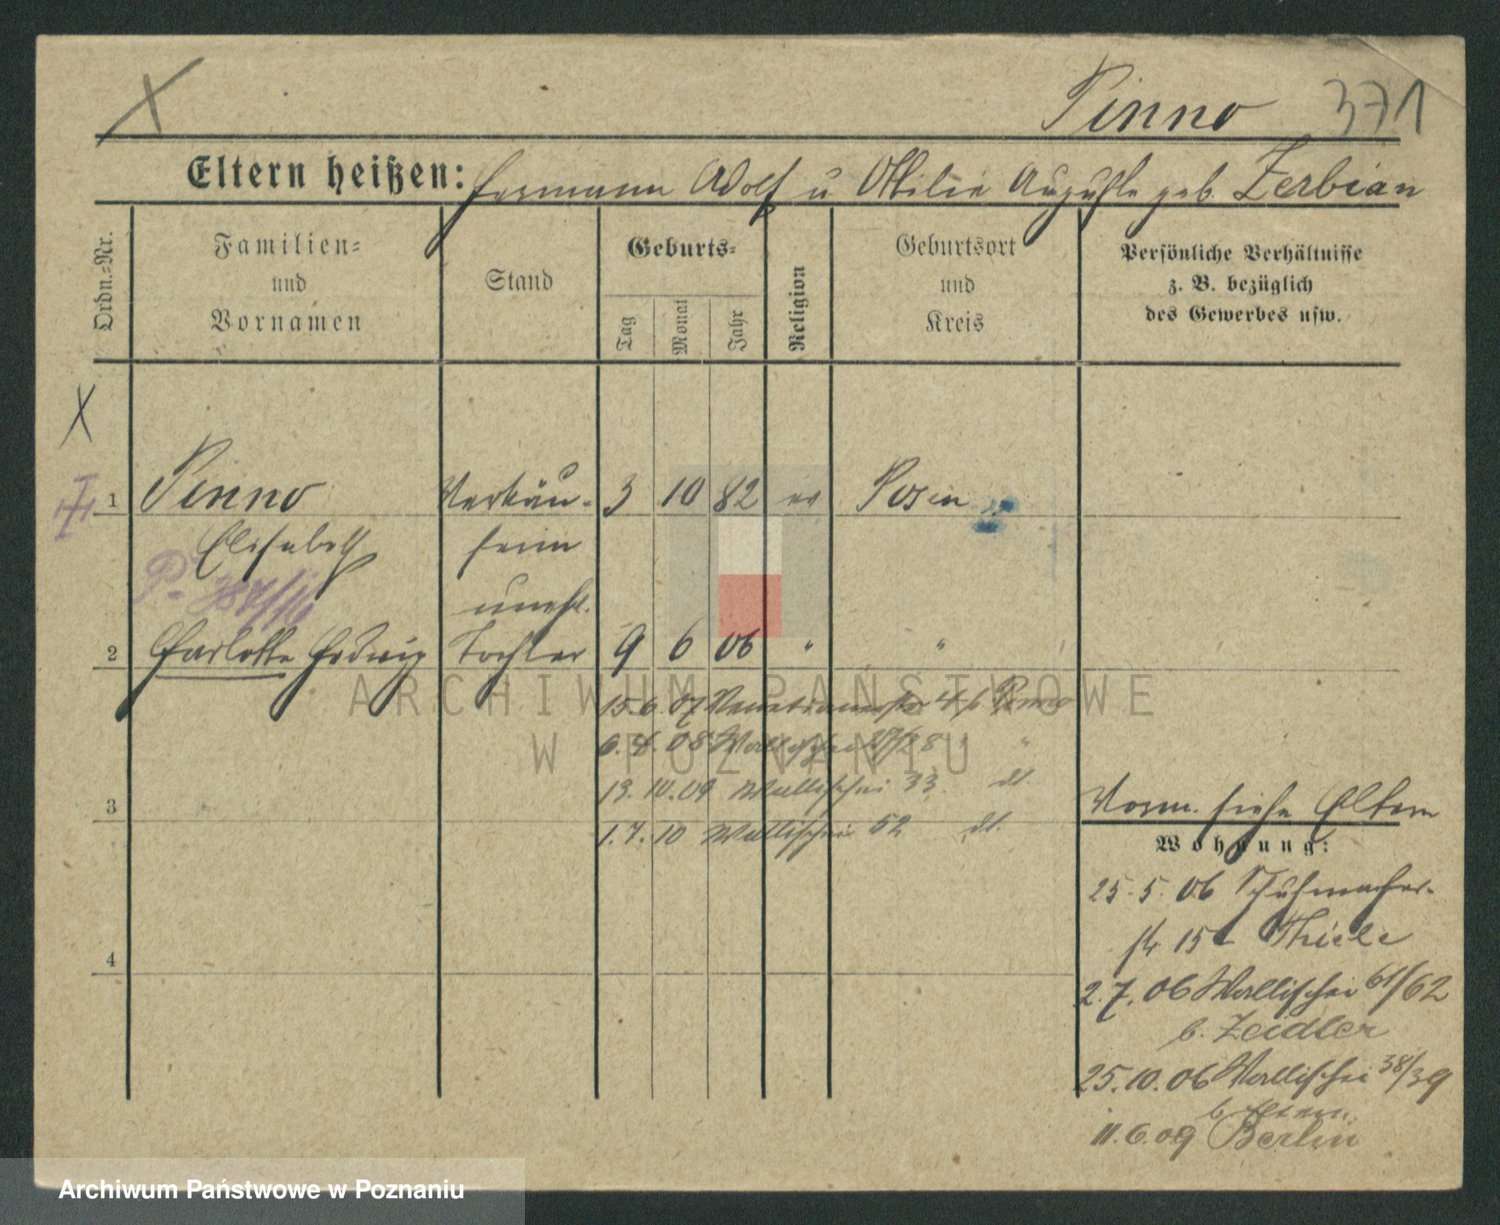 Pinno 371
Eltern heißen: Hermann Adolf u Ottilie Auguste geb. Zerbian
Ordn.=Nr.
Familien=
und
Vornamen
Stand
Geburts=
Tag
Monat
Jahr
Religion
Geburtsort
und
Kreis
Persönliche Verhältnisse
z. B. bezüglich
des Gewerbes usw.
1 Pinno Verkäu- 3 10 82 ev Posen
Elisabeth ferin
unehl.
2 Charlotte Hedwig Tochter 9 6 06 " "
15.6.07 Venetianerstr
6.4.08 Wallischei 27/28 "
19.10.09 Wallischei 33 dt.
3
1.7.10 Wallischei 52 dt.
4
Vorm. siehe Eltern
Wohnung:
25.5.06 Schuhmacher-
str 15 Thiele
2.7.06 Wallischei 61/62
b. Zeidler
25.10.06 Wallischei 38/39
b. Eltern
11.6.09 Berlin
ARCHIWUM PAŃSTWOWE
W POZNANIU
Archiwum Państwowe w Poznaniu